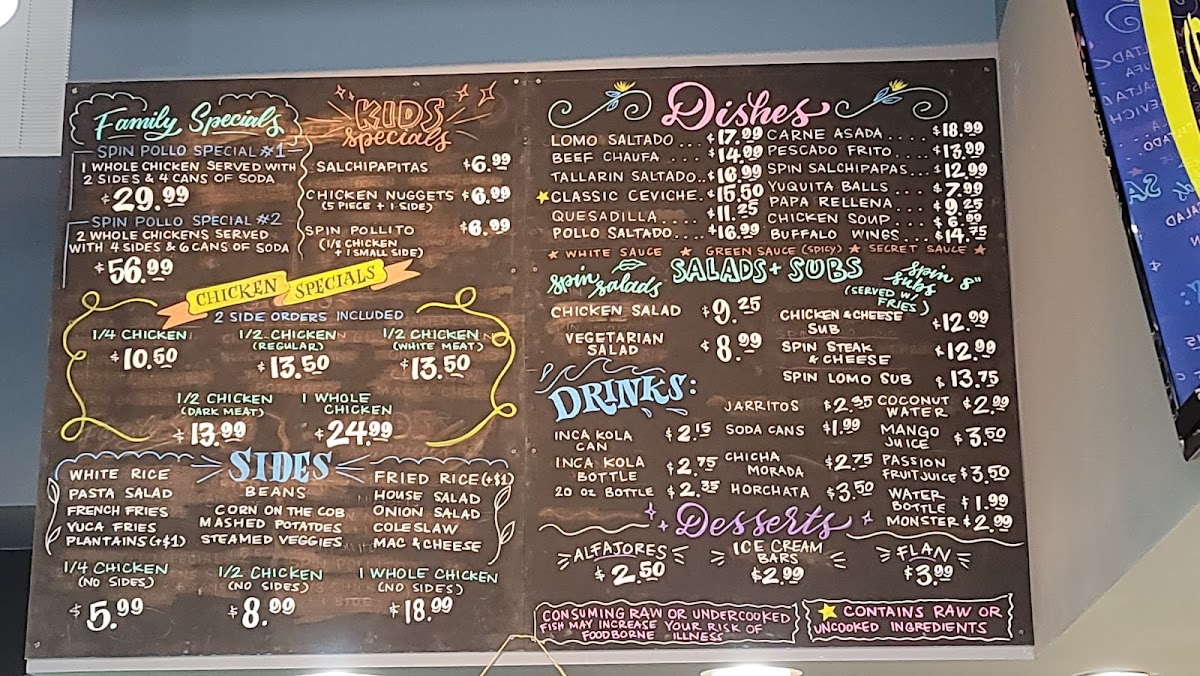 Family Specials
SPIN POLLO SPECIAL #1
1 WHOLE CHICKEN SERVED WITH
2 SIDES & 4 CANS OF SODA
$29.99
SPIN POLLO SPECIAL #2
2 WHOLE CHICKENS SERVED
WITH 4 SIDES & 6 CANS OF SODA
$56.99
KIDS
specials
SALCHIPAPITAS $6.99
CHICKEN NUGGETS $6.99
(5 PIECE + 1 SIDE)
SPIN POLLITO $6.99
(1/8 CHICKEN
+ 1 SMALL SIDE)
CHICKEN SPECIALS
2 SIDE ORDERS INCLUDED
1/4 CHICKEN
$10.50
1/2 CHICKEN
(REGULAR)
$13.50
1/2 CHICKEN
(WHITE MEAT)
$13.50
1/2 CHICKEN
(DARK MEAT)
$13.99
1 WHOLE
CHICKEN
$24.99
SIDES
WHITE RICE
PASTA SALAD
FRENCH FRIES
YUCA FRIES
PLANTAINS (+$1)
BEANS
CORN ON THE COB
MASHED POTATOES
STEAMED VEGGIES
FRIED RICE (+$1)
HOUSE SALAD
ONION SALAD
COLESLAW
MAC & CHEESE
1/4 CHICKEN
(NO SIDES)
$5.99
1/2 CHICKEN
(NO SIDES)
$8.99
1 WHOLE CHICKEN
(NO SIDES)
$18.99
Dishes
LOMO SALTADO ... $17.99
BEEF CHAUFA ... $14.99
TALLARIN SALTADO.. $16.99
CLASSIC CEVICHE. $15.50
QUESADILLA..... $11.25
POLLO SALTADO... $16.99
CARNE ASADA .... $18.99
PESCADO FRITO.... $13.99
SPIN SALCHIPAPAS... $12.99
YUQUITA BALLS ... $7.99
PAPA RELLENA.... $9.25
CHICKEN SOUP.... $6.99
BUFFALO WINGS... $14.75
★ WHITE SAUCE ★ GREEN SAUCE (SPICY) ★ SECRET SAUCE ★
SALADS + SUBS
spin
salads
CHICKEN SALAD $9.25
VEGETARIAN
SALAD $8.99
spin 8"
subs
(SERVED W/
FRIES)
CHICKEN & CHEESE
SUB $12.99
SPIN STEAK
& CHEESE $12.99
SPIN LOMO SUB $13.75
DRINKS:
INCA KOLA
CAN $2.15
INCA KOLA
BOTTLE $2.75
20 OZ BOTTLE $2.35
JARRITOS $2.35
SODA CANS $1.99
CHICHA
MORADA $2.75
HORCHATA $3.50
COCONUT
WATER $2.99
MANGO
JUICE $3.50
PASSION
FRUIT JUICE $3.50
WATER
BOTTLE $1.99
MONSTER $2.99
Desserts
ALFAJORES
$2.50
ICE CREAM
BARS
$2.99
FLAN
$3.99
CONSUMING RAW OR UNDERCOOKED
FISH MAY INCREASE YOUR RISK OF
FOODBORNE ILLNESS
★ CONTAINS RAW OR
UNCOOKED INGREDIENTS